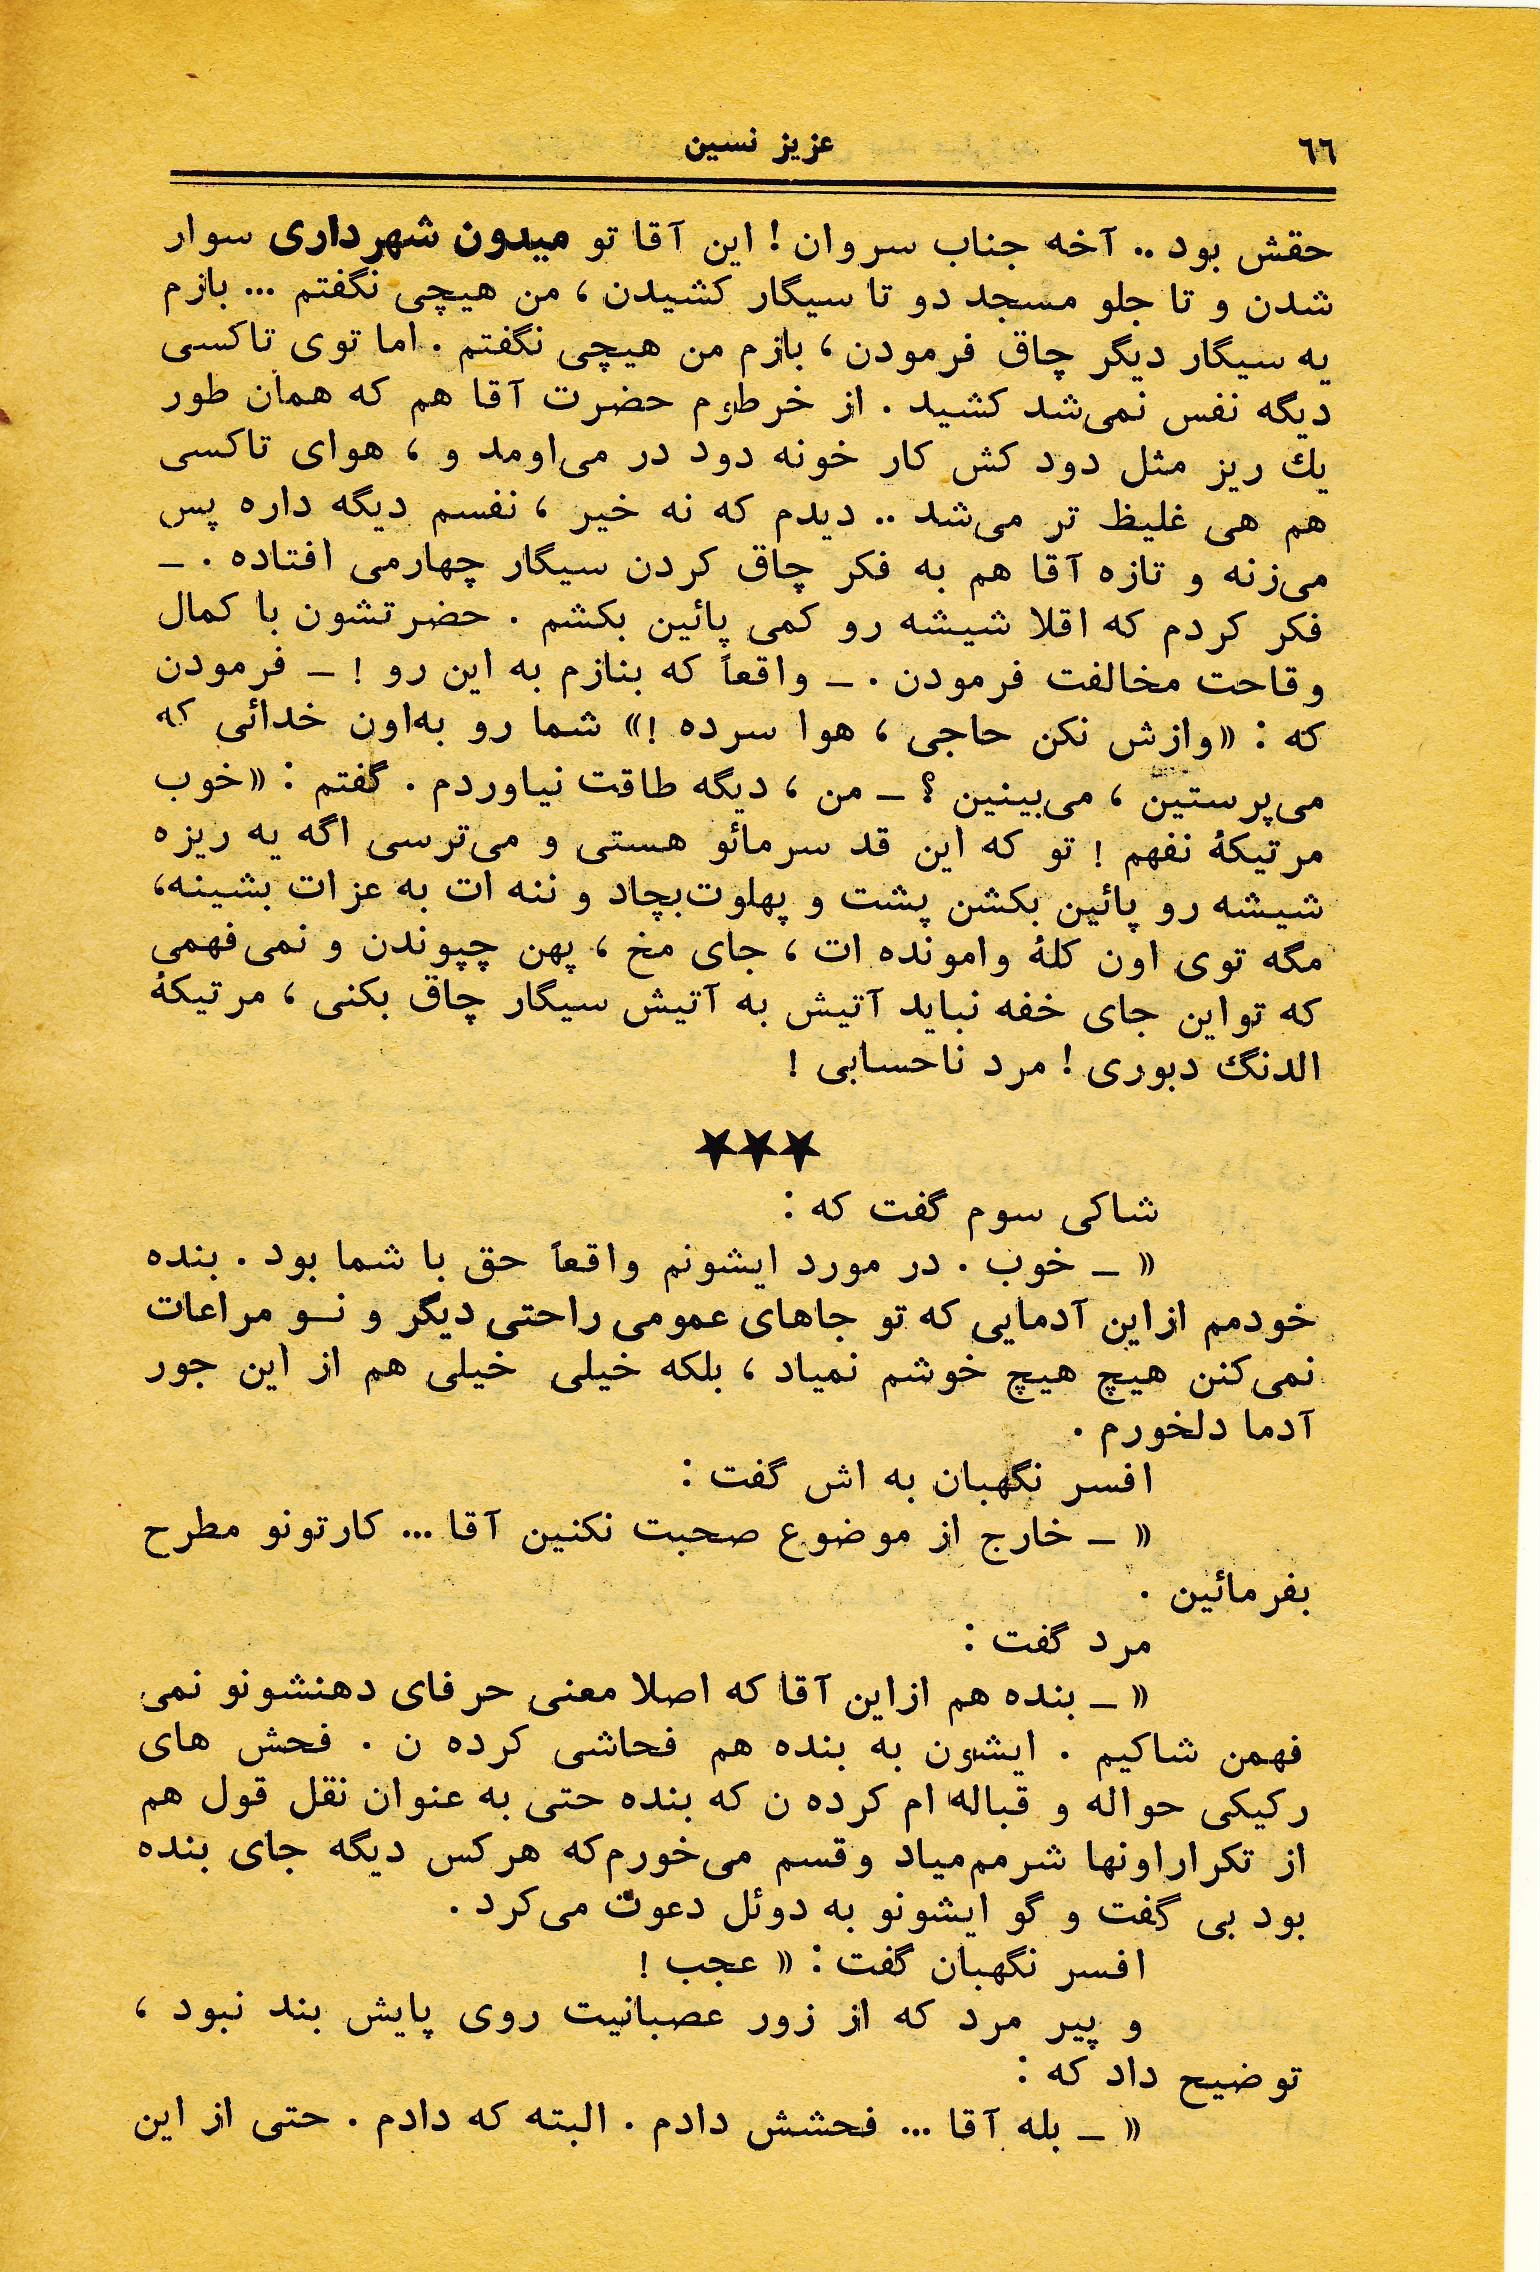 ٦٦
عزیز نسین
حقش بود .. آخه جناب سروان ! این آقا تو میدون شهرداری سوار
شدن و تا جلو مسجد دو تا سیگار کشیدن ، من هیچی نگفتم ... بازم
یه سیگار دیگر چاق فرمودن ، بازم من هیچی نگفتم . اما توی تاکسی
دیگه نفس نمی‌شد کشید . از خرطوم حضرت آقا هم که همان طور
یك ریز مثل دود کش کار خونه دود در می‌اومد و ، هوای تاکسی
هم هی غلیظ تر می‌شد .. دیدم که نه خیر ، نفسم دیگه داره پس
می‌زنه و تازه آقا هم به فکر چاق کردن سیگار چهارمی افتاده . ـ
فکر کردم که اقلا شیشه رو کمی پائین بکشم . حضرتشون با کمال
وقاحت مخالفت فرمودن . ـ واقعاً که بنازم به این رو ! ـ فرمودن
که : «وازش نکن حاجی ، هوا سرده !» شما رو به‌اون خدائی که
می‌پرستین ، می‌بینین ؟ ـ من ، دیگه طاقت نیاوردم . گفتم : «خوب
مرتیکهٔ نفهم ! تو که این قد سرمائو هستی و می‌ترسی اگه یه ریزه
شیشه رو پائین بکشن پشت و پهلوت‌بچاد و ننه ات به عزات بشینه،
مگه توی اون کلهٔ وامونده ات ، جای مخ ، پهن چپوندن و نمی‌فهمی
که تواین جای خفه نباید آتیش به آتیش سیگار چاق بکنی ، مرتیکهٔ
الدنگ دبوری ! مرد ناحسابی !
★★★
شاکی سوم گفت که :
« ـ خوب . در مورد ایشونم واقعاً حق با شما بود . بنده
خودمم ازاین آدمایی که تو جاهای عمومی راحتی دیگر و نــو مراعات
نمی‌کنن هیچ هیچ خوشم نمیاد ، بلکه خیلی خیلی هم از این جور
آدما دلخورم .
افسر نگهبان به اش گفت :
« ـ خارج از موضوع صحبت نکنین آقا ... کارتونو مطرح
بفرمائین .
مرد گفت :
« ـ بنده هم ازاین آقا که اصلا معنی حرفای دهنشونو نمی
فهمن شاکیم . ایشون به بنده هم فحاشی کرده ن . فحش های
رکیکی حواله و قباله ام کرده ن که بنده حتی به عنوان نقل قول هم
از تکراراونها شرمم‌میاد وقسم می‌خورم‌که هرکس دیگه جای بنده
بود بی گفت و گو ایشونو به دوئل دعوت می‌کرد .
افسر نگهبان گفت : « عجب !
و پیر مرد که از زور عصبانیت روی پایش بند نبود ،
توضیح داد که :
« ـ بله آقا ... فحشش دادم . البته که دادم . حتی از این